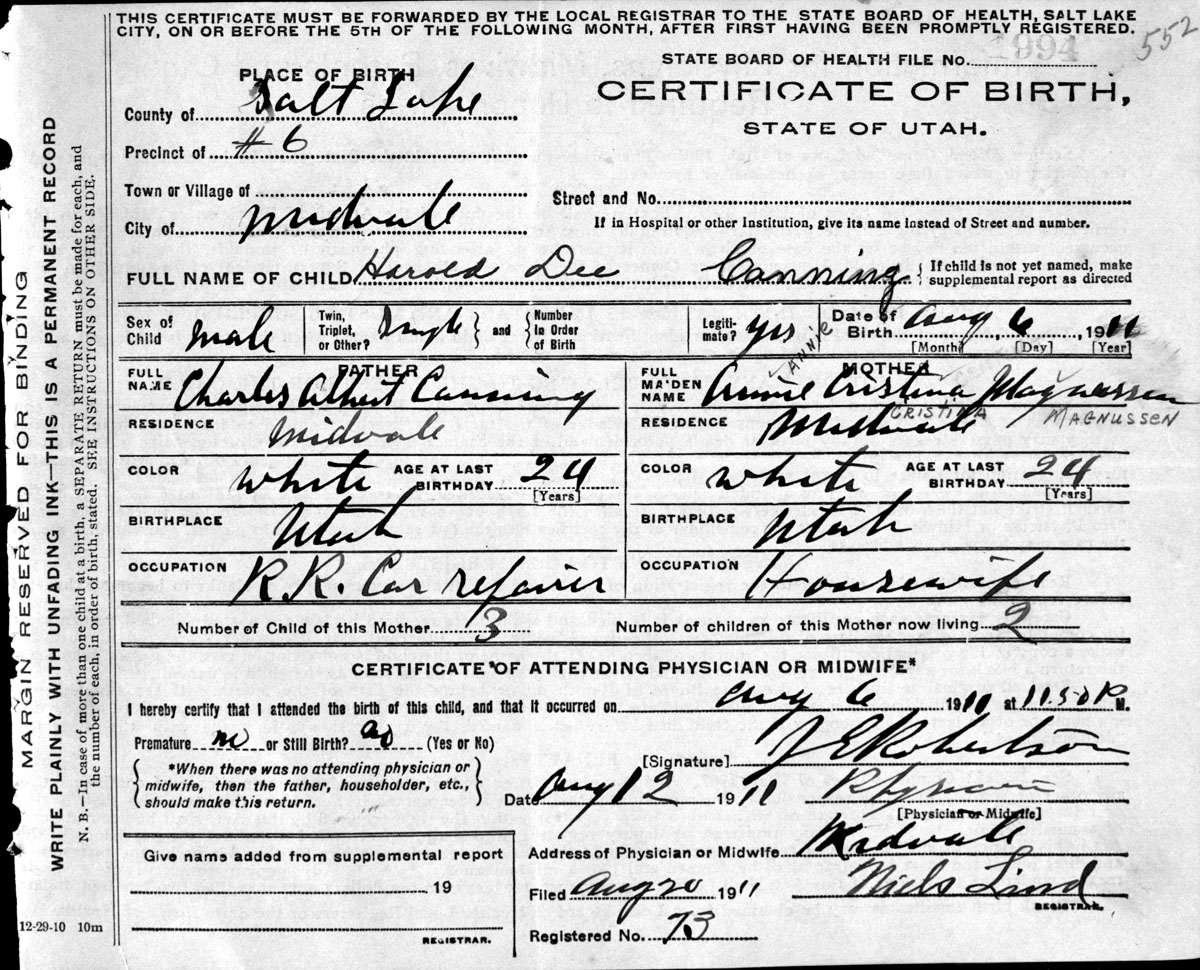 THIS CERTIFICATE MUST BE FORWARDED BY THE LOCAL REGISTRAR TO THE STATE BOARD OF HEALTH, SALT LAKE
CITY, ON OR BEFORE THE 5TH OF THE FOLLOWING MONTH, AFTER FIRST HAVING BEEN PROMPTLY REGISTERED.
552
STATE BOARD OF HEALTH FILE No. 1994
CERTIFICATE OF BIRTH,
STATE OF UTAH.
PLACE OF BIRTH
County of Salt Lake
Precinct of #6
Town or Village of
City of Midvale
Street and No.
If in Hospital or other Institution, give its name instead of Street and number.
FULL NAME OF CHILD Harold Dee Canning { If child is not yet named, make supplemental report as directed
Sex of Child Male Twin, Triplet, or Other? Single } and { Number in Order of Birth Legitimate? yes Date of Birth Aug 6, 1911
[Month] [Day] [Year]
FATHER
FULL NAME Charles Albert Canning
RESIDENCE Midvale
COLOR White AGE AT LAST BIRTHDAY 24 [Years]
BIRTHPLACE Utah
OCCUPATION R.R. Car repairer
MOTHER
ANNIE
FULL MAIDEN NAME Annie Cristina Magnussen
CRISTINA MAGNUSSEN
RESIDENCE Midvale
COLOR White AGE AT LAST BIRTHDAY 24 [Years]
BIRTHPLACE Utah
OCCUPATION Housewife
Number of Child of this Mother 3 Number of children of this Mother now living 2
CERTIFICATE OF ATTENDING PHYSICIAN OR MIDWIFE*
I hereby certify that I attended the birth of this child, and that it occurred on Aug 6 1911 at 11.50 P. M.
Premature no or Still Birth? no (Yes or No)
{ *When there was no attending physician or midwife, then the father, householder, etc., should make this return. }
[Signature] J E Robertson
Date Aug 12 1911 Physician
[Physician or Midwife]
Address of Physician or Midwife Midvale
Filed Aug 20 1911 Niels Lind
REGISTRAR.
Registered No. 73
Give name added from supplemental report
19
REGISTRAR.
12-29-10 10m
MARGIN RESERVED FOR BINDING
WRITE PLAINLY WITH UNFADING INK—THIS IS A PERMANENT RECORD
N. B.—In case of more than one child at a birth, a SEPARATE RETURN must be made for each, and
the number of each, in order of birth, stated. SEE INSTRUCTIONS ON OTHER SIDE.